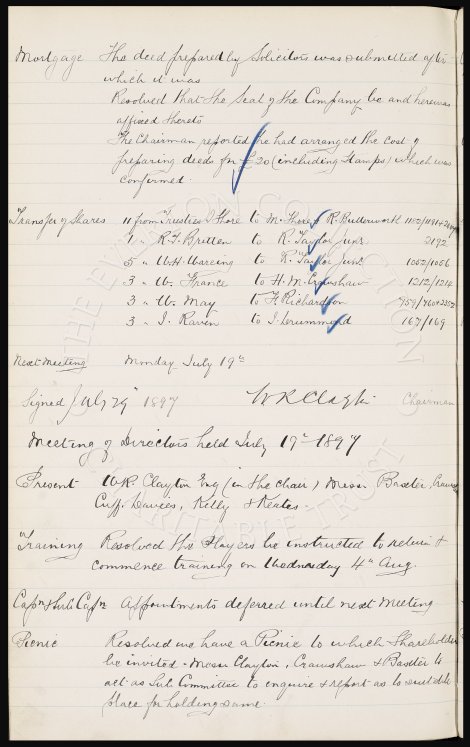 Mortgage The deed prepared by Solicitors was submitted after
which it was
Resolved that the Seal of the Company be and hereis
affixed thereto
The Chairman reported he had arranged the cost of
preparing deeds for £20 (including Stamps) which was
confirmed.
Transfer of Shares 11 from Trustees I Shore to M. Shore & R. Butterworth
1 " R. T. Britten to R. Taylor Junr. 2192
5 " W. H. Wareing to R. Taylor Junr. 1052/1056
3 " W. France to H. M. Crawshaw 1212/1214
3 " W. May to F. Richardson 959/960+2252
3 " I. Raven to I. Drummond 167/169
Next Meeting Monday July 19th
Signed July 29 1897 W R Clayton Chairman
Meeting of Directors held July 19th 1897
Present W. R. Clayton Esq (in the chair) Messrs Baxter,
Cuff, Davies, Kelly & Keates.
Training Resolved the Players be instructed to return &
commence training on Wednesday 4th Aug.
Capn & Sub Capn Appointments deferred until next Meeting
Picnic Resolved we have a Picnic to which Shareholders
be invited - Messrs Clayton, Crawshaw & Baxter to
act as Sub Committee to enquire & report as to suitable
place for holding same.
THE EVERTON COLLECTION
CHARITABLE TRUST